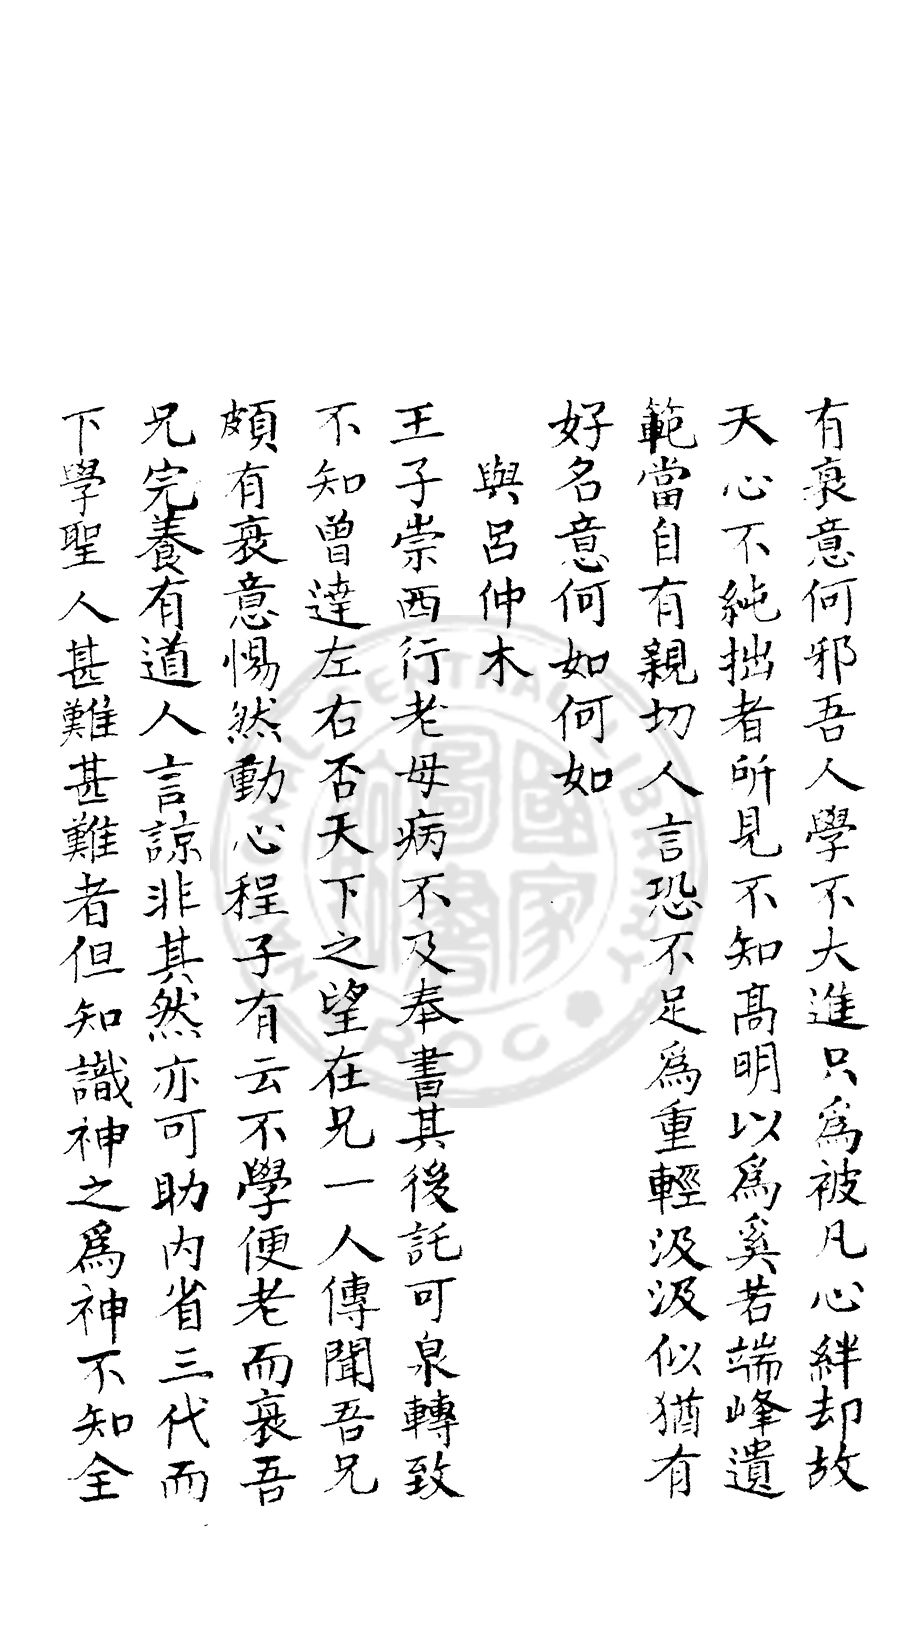 有衰意何邪吾人學不大進只為被凡心絆却故
天心不純拙者所見不知髙明以為奚若端峰遺
範當自有親切人言恐不足為重輕汲汲似猶有
好名意何如何如
與呂仲木
王子崇西行老母病不及奉書其後託可泉轉致
不知曾達左右否天下之望在兄一人傳聞吾兄
頗有衰意惕然動心程子有云不學便老而衰吾
兄完養有道人言諒非其然亦可助內省三代而
下學聖人甚難甚難者但知識神之爲神不知全